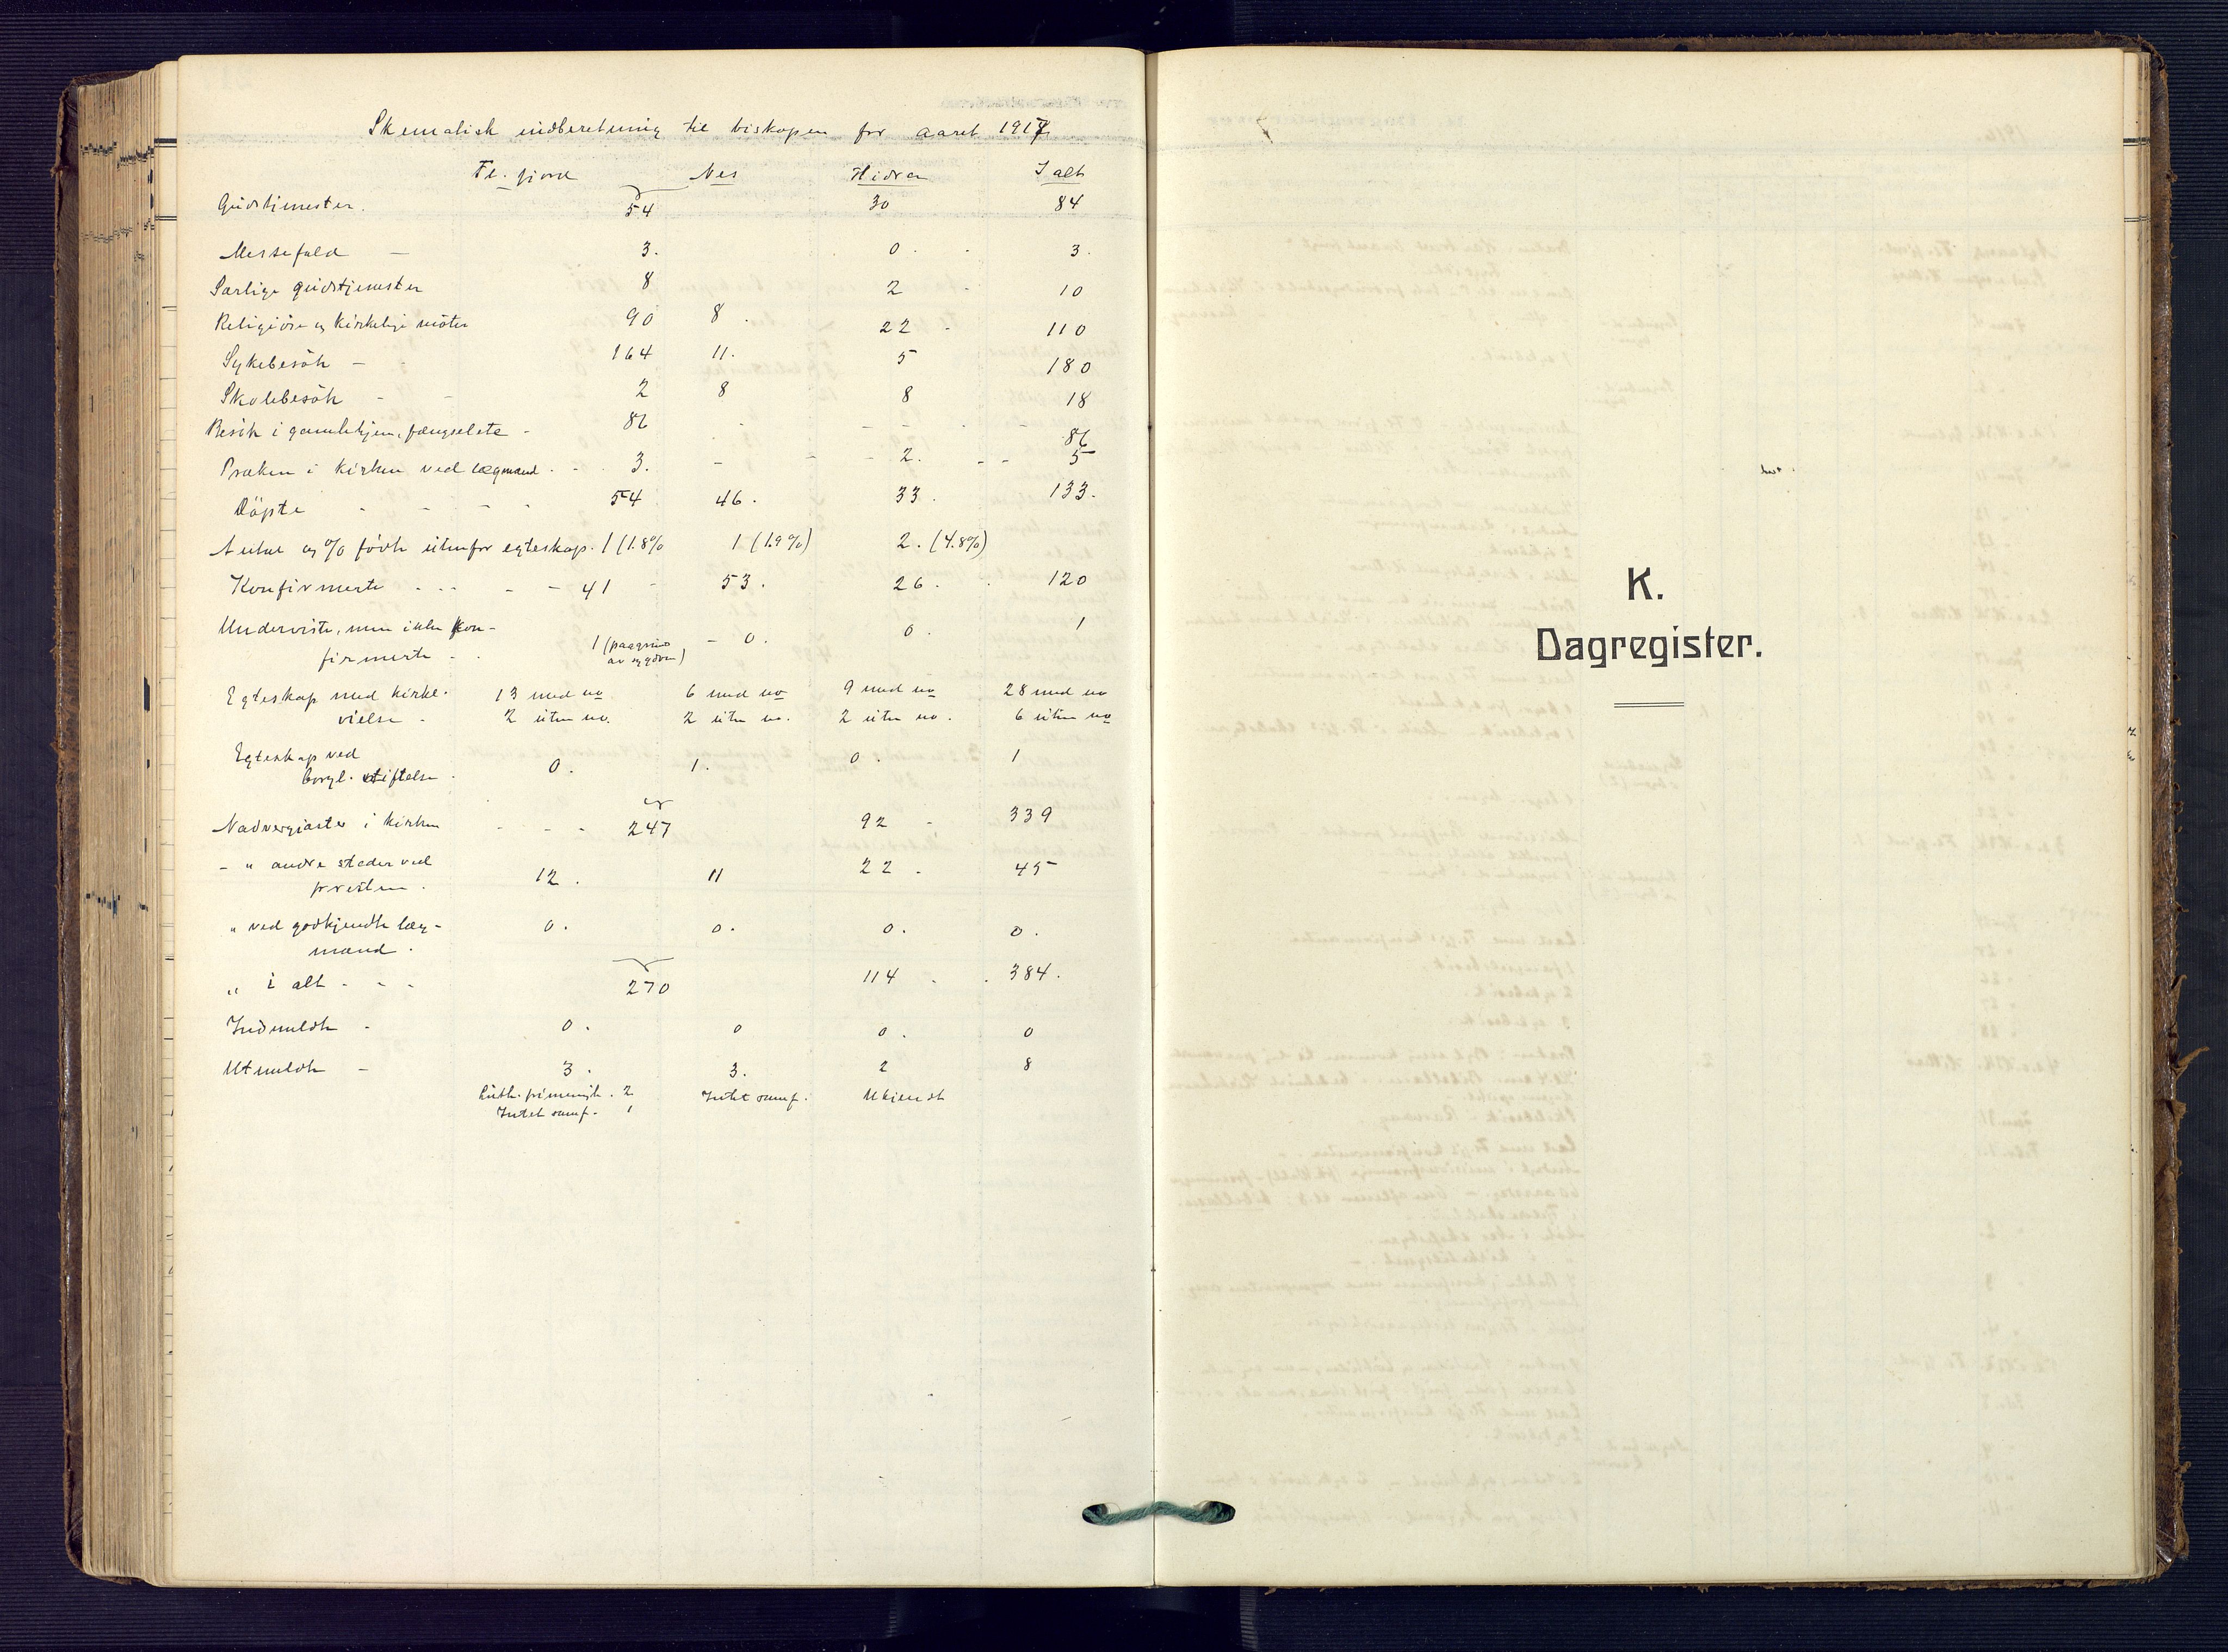 Skematisk indberetning til biskopen for aaret 1917
Fl. fjord Nes Hidra I alt
Gudstjenester. 54 30 84
Messefald - 3. 0. 3.
Særlige gudstjenester 8 2 10
Religiöse og kirkelige möter 90 8. 22 110
Sykebesök - 164 11. 5 180
Skolebesök - 2 8 8 18
Besök i gamlehjem, fængsel etc - 86 86
Præken i kirken ved lægmænd. 3. - - 2. - - 5
Döpte 54 46. 33. 133.
Antal og % födte utenfor egteskap. 1 (1.8% 1 (1.9%) 2. (4.8%)
Konfirmerte - - - 41 53. 26. 120
Underviste, men ikke kon-
firmerte - 1 (paa grund av sygdom) - 0. 0. 1
Egteskap med kirkel. 13 med no 6 med no 9 med no 28 med no
vielse - 2 uten no. 2 uten no. 2 uten no. 6 uten no
Egteskap ved
borgl. stiftelse. 0. 1. 0. 1
Nadvergjæster i kirken - - - 247 92 - 339
- " andre steder ved
presten. 12. 11 22 - 45
" ved godkjendte læg-
mænd. 0. 0. 0. 0.
" i alt - - - 270 114 384.
Indmeldte - 0. 0 0. 0
Utmeldte - 3. 3. 2 8
Luth. frimenigh. 2 Intet samf. Ukjendt
Intet samf. 1
K.
Dagregister.